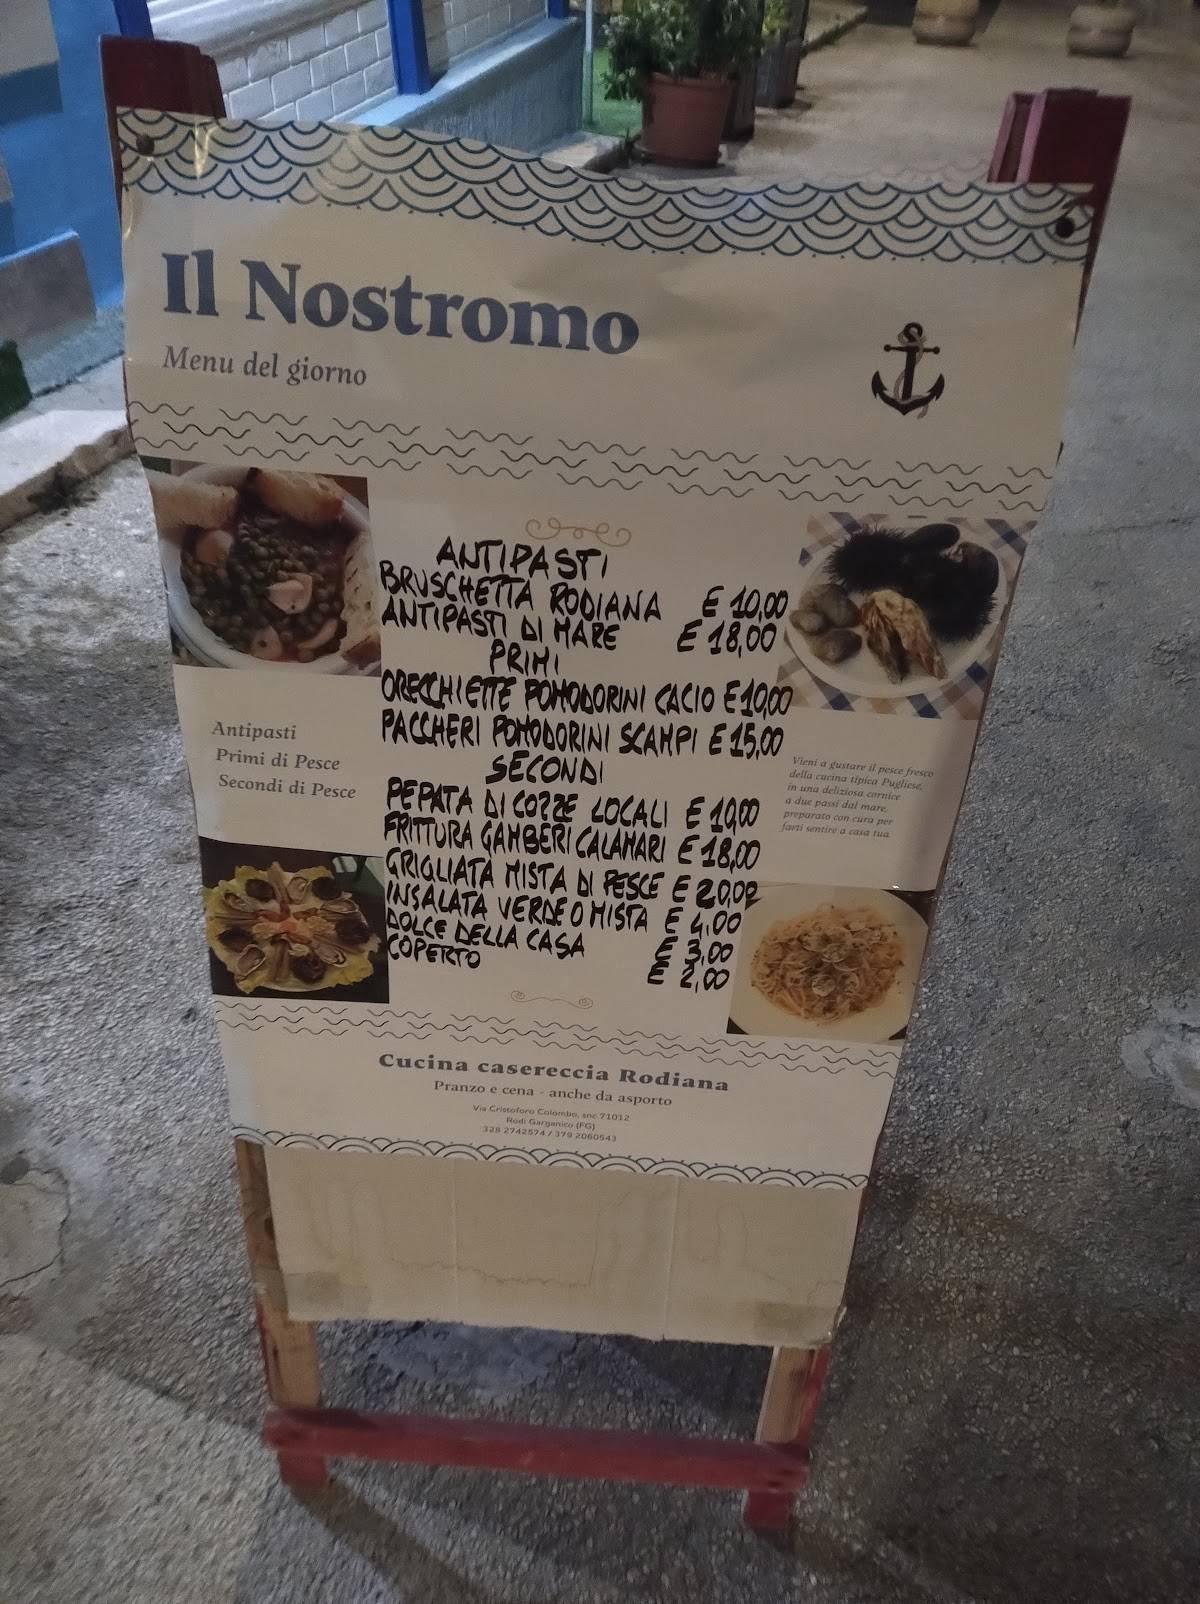 Il Nostromo
Menu del giorno
ANTIPASTI
BRUSCHETTA RODIANA E 10,00
ANTIPASTI DI MARE E 18,00
PRIMI
ORECCHIETTE POMODORINI CACIO E 10,00
PACCHERI POMODORINI SCAMPI E 15,00
SECONDI
PEPATA DI COZZE LOCALI E 10,00
FRITTURA GAMBERI CALAMARI E 18,00
GRIGLIATA MISTA DI PESCE E 20,00
INSALATA VERDE O MISTA E 4,00
DOLCE DELLA CASA E 3,00
COPERTO E 2,00
Antipasti
Primi di Pesce
Secondi di Pesce
Vieni a gustare il pesce fresco
della cucina tipica Pugliese,
in una deliziosa cornice
a due passi dal mare,
preparato con cura per
farti sentire a casa tua
Cucina casereccia Rodiana
Pranzo e cena - anche da asporto
Via Cristoforo Colombo, snc 71012
Rodi Garganico (FG)
328 2742574 / 379 2060543